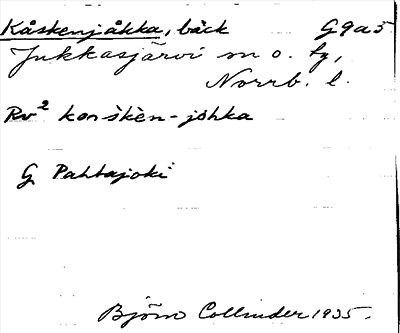 Kåskenjåkka, bäck G9a5
Jukkasjärvi sn o. tg,
Norrb. l.
Rv² kon-škèn-jòhka
G Pahtajoki
Björn Collinder 1935.